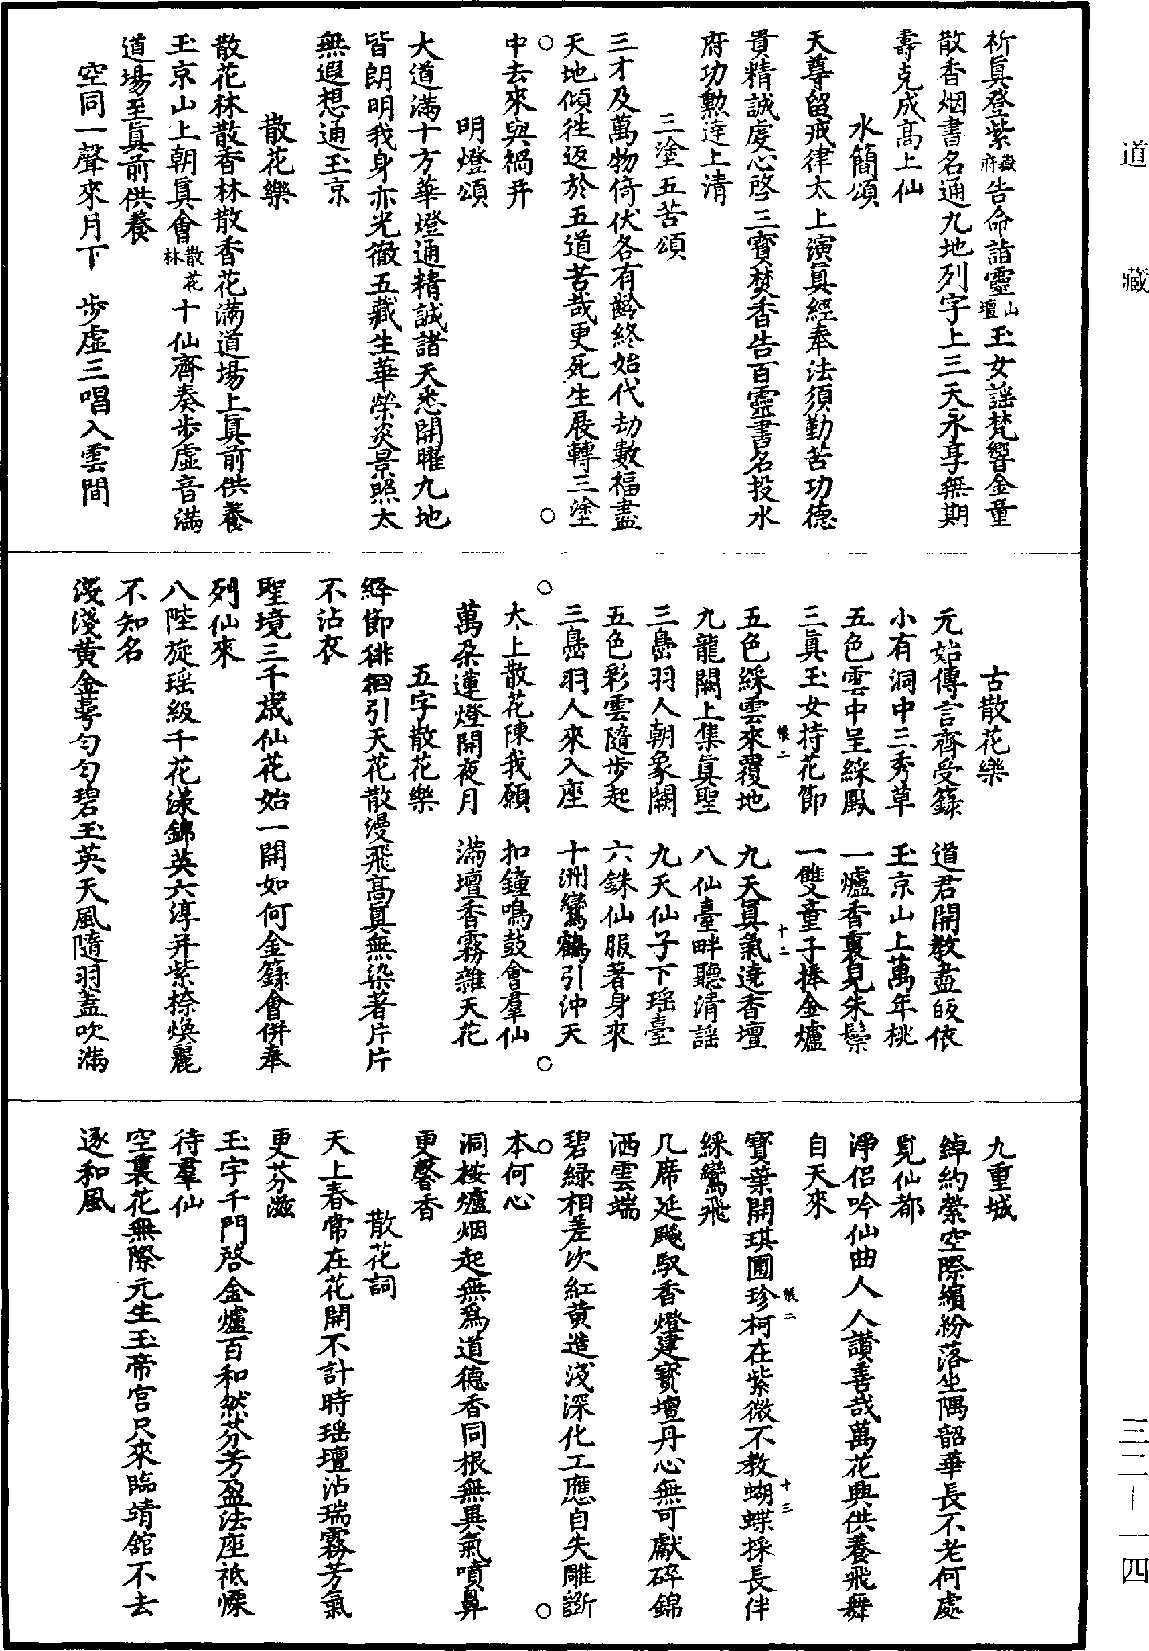 道藏
祈真登紫嶽府告命詣靈山壇玉女謡梵響金童
散香烟書名通九地列字上三天永享無期
壽克成高上仙
水簡頌
天尊留戒律太上演真經奉法須勤苦功德
貴精誠虔心啓三寳焚香告百靈書名投水
府功勲達上清
三塗五苦頌
三才及萬物倚伏各有齡終始代劫數福盡
天地傾往返於五道苦哉更死生展轉三塗
中去來與禍并
明燈頌
大道滿十方華燈通精誠諸天悉開曜九地
皆朗明我身亦光徹五藏生華榮炎景照太
無遐想通玉京
散花樂
散花林散香林散香花滿道場上真前供養
玉京山上朝真會散花林十仙齊奏步虛音滿
道場至真前供養
空同一聲來月下　步虛三唱入雲間
古散花樂
元始傳言齊受籙　道君開教盡皈依
小有洞中三秀草　玉京山上萬年桃
五色雲中呈綵鳳　一爐香裏見朱鬃
三真玉女持花節　一雙童子捧金爐
帙二　十二
五色綵雲來覆地　九天真氣遶香壇
九龍闕上集真聖　八仙臺畔聽清謡
三島羽人朝象闕　九天仙子下瑶臺
五色彩雲隨步起　六銖仙服著身來
三島羽人來入座　十洲鸞鶴引沖天
太上散花陳我願　扣鐘鳴鼓會羣仙
萬朶蓮燈開夜月　滿壇香霧雜天花
五字散花樂
絳節徘徊引天花散漫飛高真無染著片片
不沾衣
聖境三千歲仙花始一開如何金籙會併奉
列仙來
八陛旋瑶級千花漾錦英六淳并紫捺煥麗
不知名
淺淺黄金萼勻勻碧玉英天風隨羽蓋吹滿
九重城
綽約縈空際繽紛落坐隅韶華長不老何處
覓仙都
淨侣吟仙曲人人讚善哉萬花興供養飛舞
自天來
寳葉開琪圃珍柯在紫微不教蝴蝶採長伴
帙二　十三
綵鸞飛
几席延飈馭香燈建寳壇丹心無可獻碎錦
洒雲端
碧綠相差次紅黄造淺深化工應自失雕斵
本何心
洞桉爐烟起無爲道德香同根無異氣噴鼻
更馨香
散花詞
天上春常在花開不計時瑶壇沾瑞霧芳氣
更芬滋
玉宇千門啓金爐百和然芬芳盈法座祗慄
待羣仙
空裏花無際元生玉帝宫尺來臨靖舘不去
逐和風
三二—一四